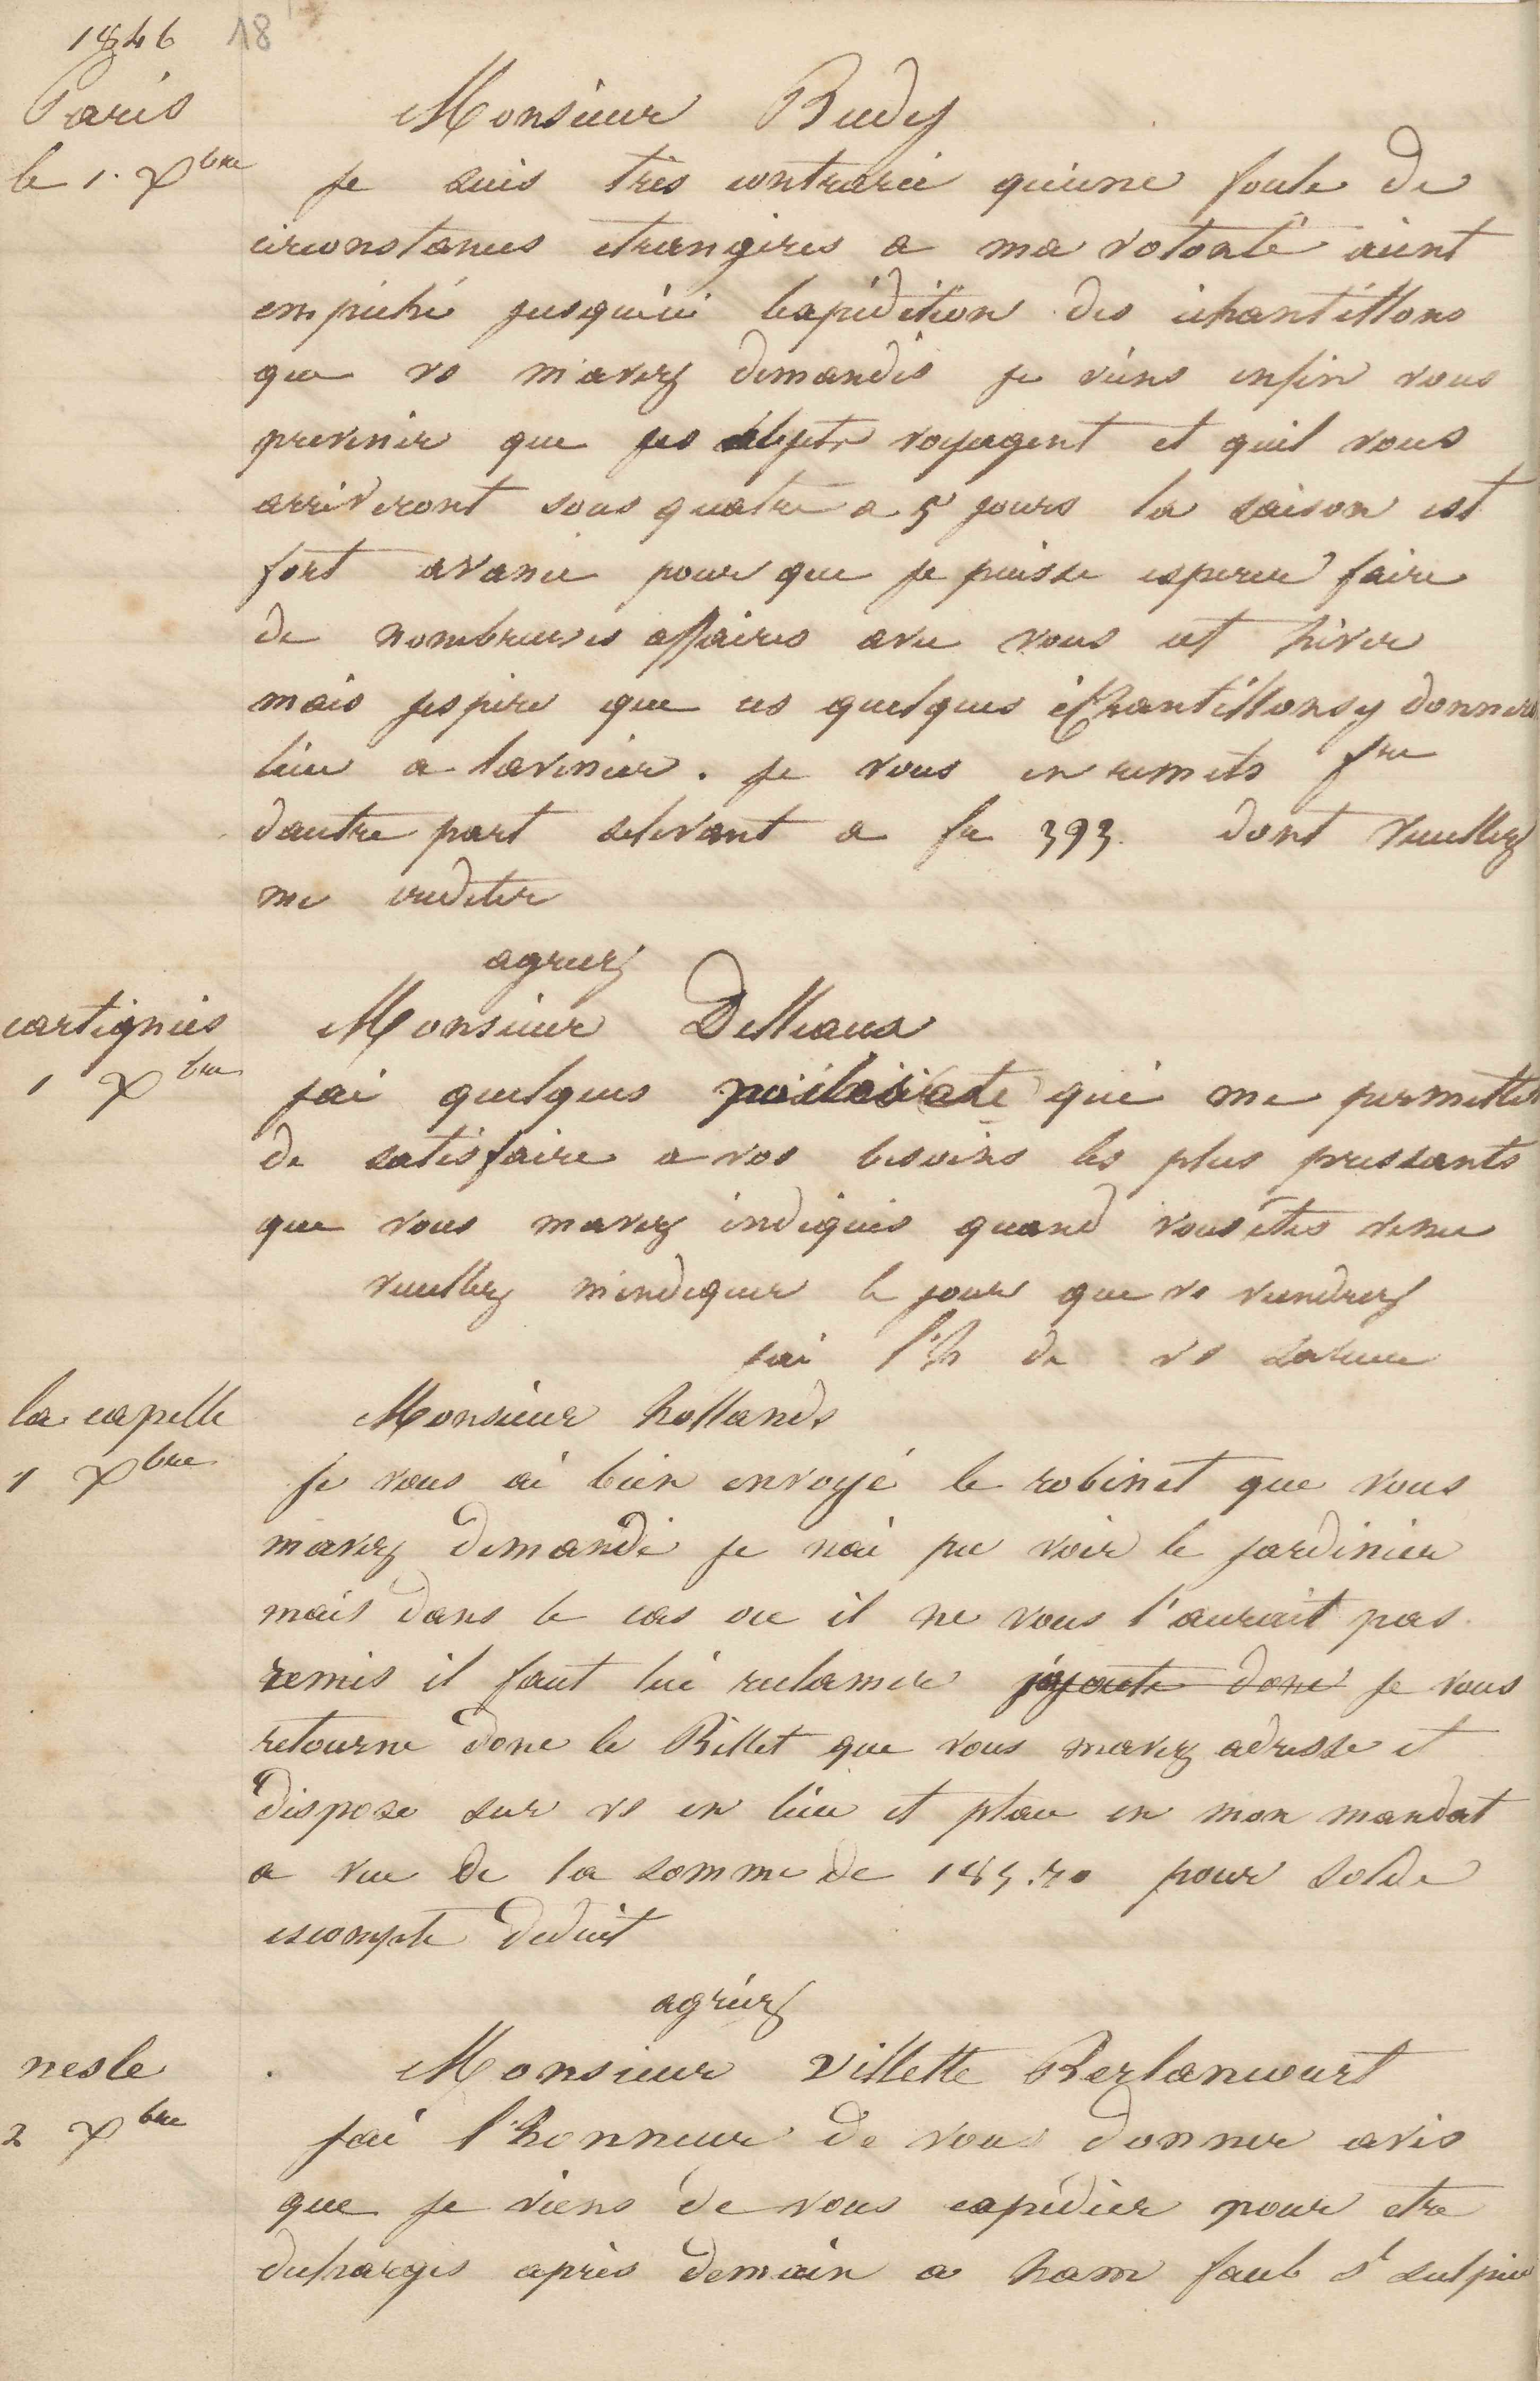 1846 18
Paris
le 1. Xbre
Monsieur Budy
je suis très contrarié qu'une foule de
circonstances etrangères a ma volonté aient
empêché jusqu'ici l'expédition des échantillons
que vs m'avez demandés je viens enfin vous
prevenir que objets voyagent et quil vous
arriveront sous quatre a 5 jours la saison est
fort avancé pour que je puisse esperer faire
de nombreuses affaires avec vous cet hiver
mais jespère que ces quelques échantillons y donnera
lieu a lavenir. je vous en remets fre
dautre part selevant a fr 393. dont veuillez
me crediter
agreez
cartignies
1 Xbre
Monsieur Delleaux
jai quelques qui me permettent
de satisfaire a vos besoins les plus pressants
que vous mavez indiqués quand vous êtes venu
veuillez mindiquer le jour que vs viendrez
jai l'h de vs saluer
la capelle
1 Xbre
Monsieur hollande
je vous ai bien envoyé le robinet que vous
mavez demandé je nai pu voir le jardinier
mais dans le cas ou il ne vous l'aurait pas
remis il faut lui reclamer j'ajoute donc je vous
retourne donc le Billet que vous mavez adresse et
dispose sur vs en lieu et place en mon mandat
a vue de la somme de 185.70 pour solde
escompte deduit
agréez
nesle
2 Xbre
Monsieur Villette Berlancourt
jai l'honneur de vous donner avis
que je viens de vous expédier pour etre
dechargés après demain a ham faub St sulpice